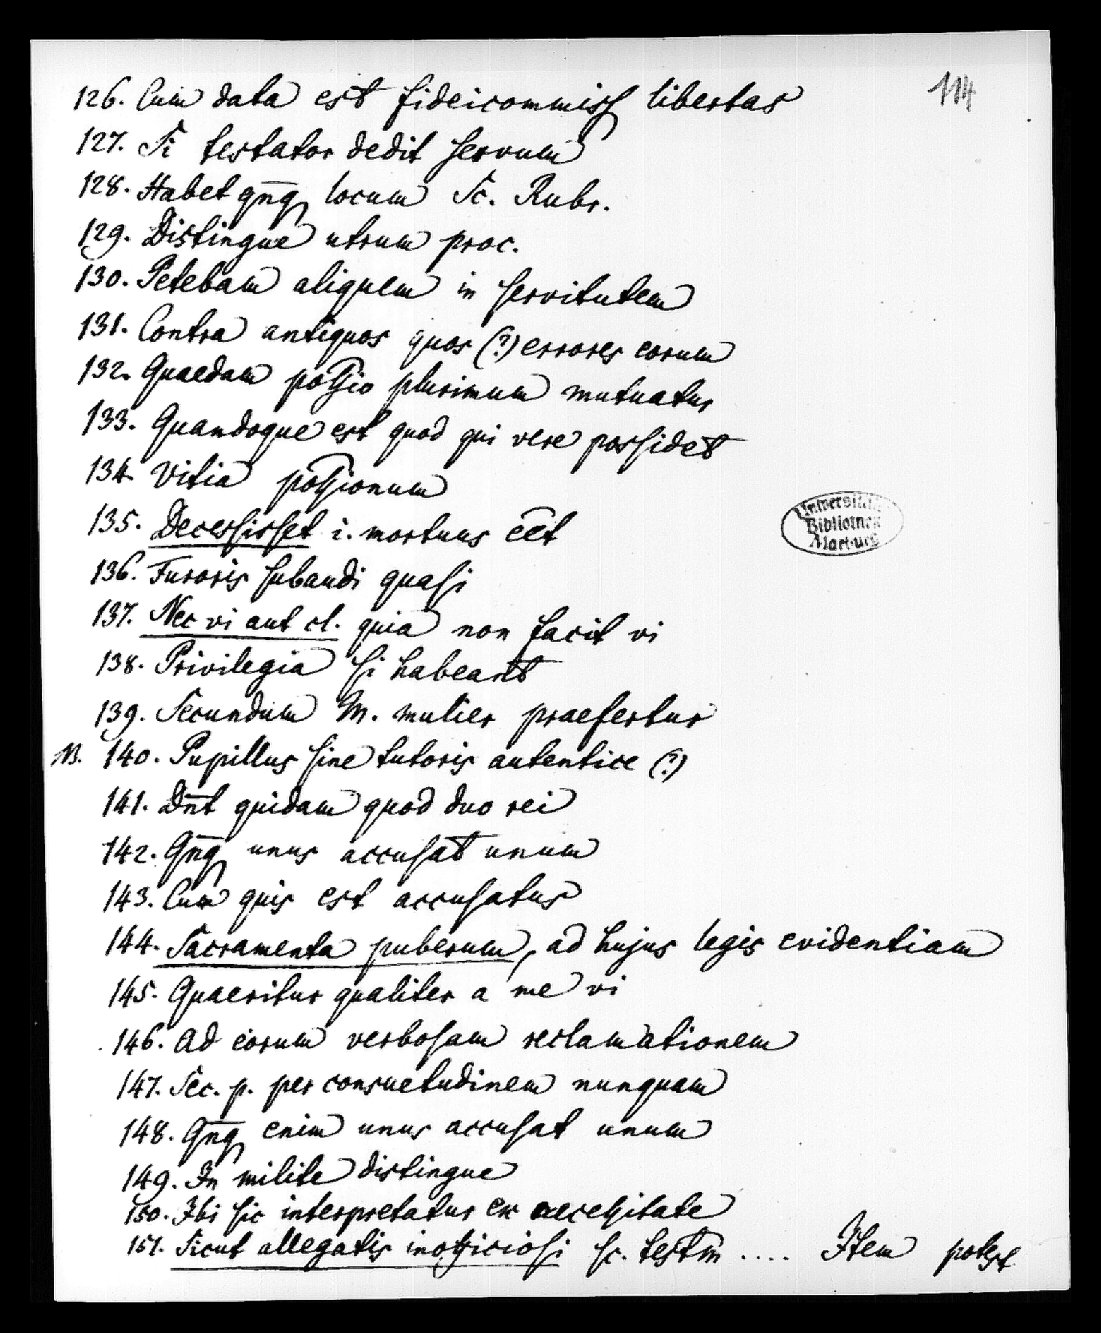 114
126. Cum data est fideicommiss libertas
127. Si testator dedit servum
128. Habet qn̄q locum Sc. Rubr.
129. Distingue utrum proc.
130. Petebam aliquem in servitutem
131. Contra antiquos quos (?) errores eorum
132. Quaedam possio plurimum mutuatur
133. Quandoque est quod qui vere possidet
134. Vitia possionum
135. Decessisset i. mortuus eēt
136. Furoris subaudi quasi
137. Nec vi aut cl. quia non facit vi
138. Privilegia si habeant
139. Secundum M. mulier praefertur
NB. 140. Pupillus sine tutoris autentice (?)
141. Dn̄t quidam quod duo rei
142. Qn̄q unus accusat unum
143. Cum quis est accusatus
144. Sacramenta puberum, ad hujus legis evidentiam
145. Quaeritur qualiter a me vi
146. Ad eorum verbosam reclamationem
147. Sec. p. per consuetudinem nunquam
148. Qn̄q enim unus accusat unum
149. In milite distingue
150. Ibi sic interpretatur ex necessitate
151. Sicut allegatis inofficiosi sc. testm̄ .... Item potest
Universitäts
Bibliothek
Marburg